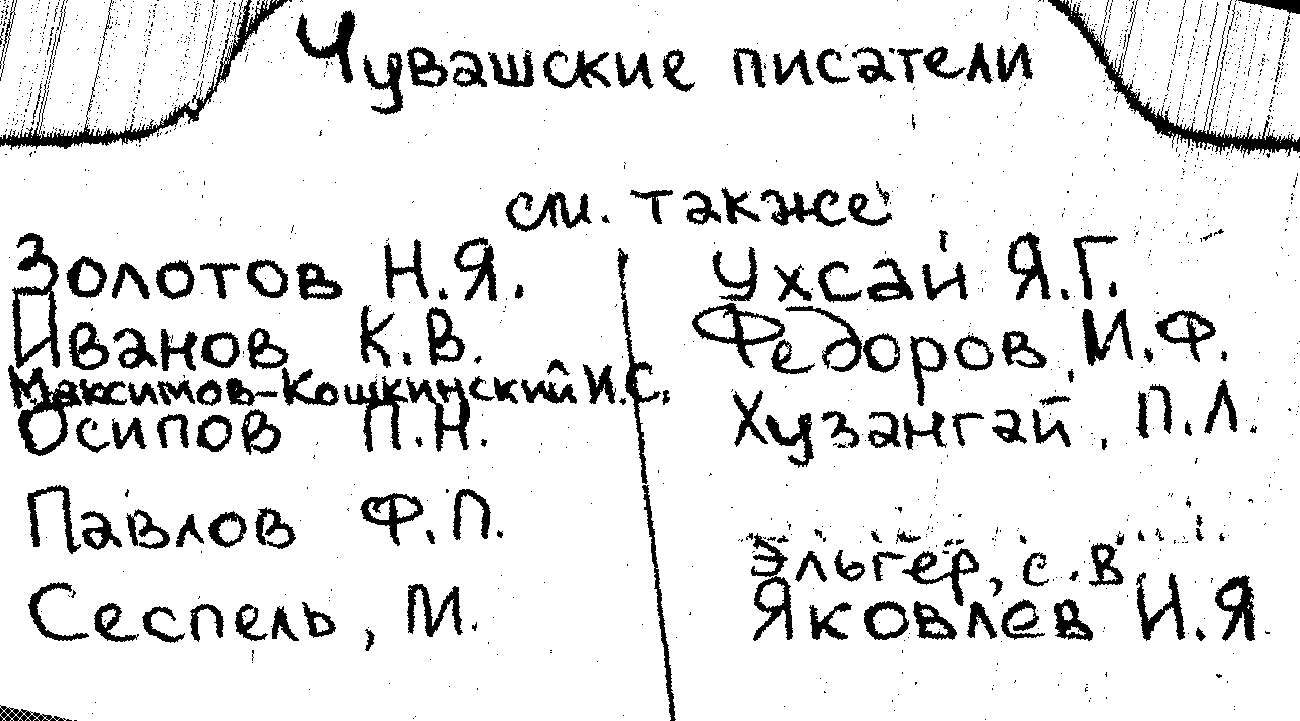 Чувашские писатели
см. также
Золотов Н.Я.
Иванов К.В.
Максимов-Кошкинский И.С.
Осипов П.Н.
Павлов Ф.П.
Сеспель, М.
Ухсай Я.Г.
Федоров И.Ф.
Хузангай, П.Л.
Эльгер, С.В
Яковлев И.Я